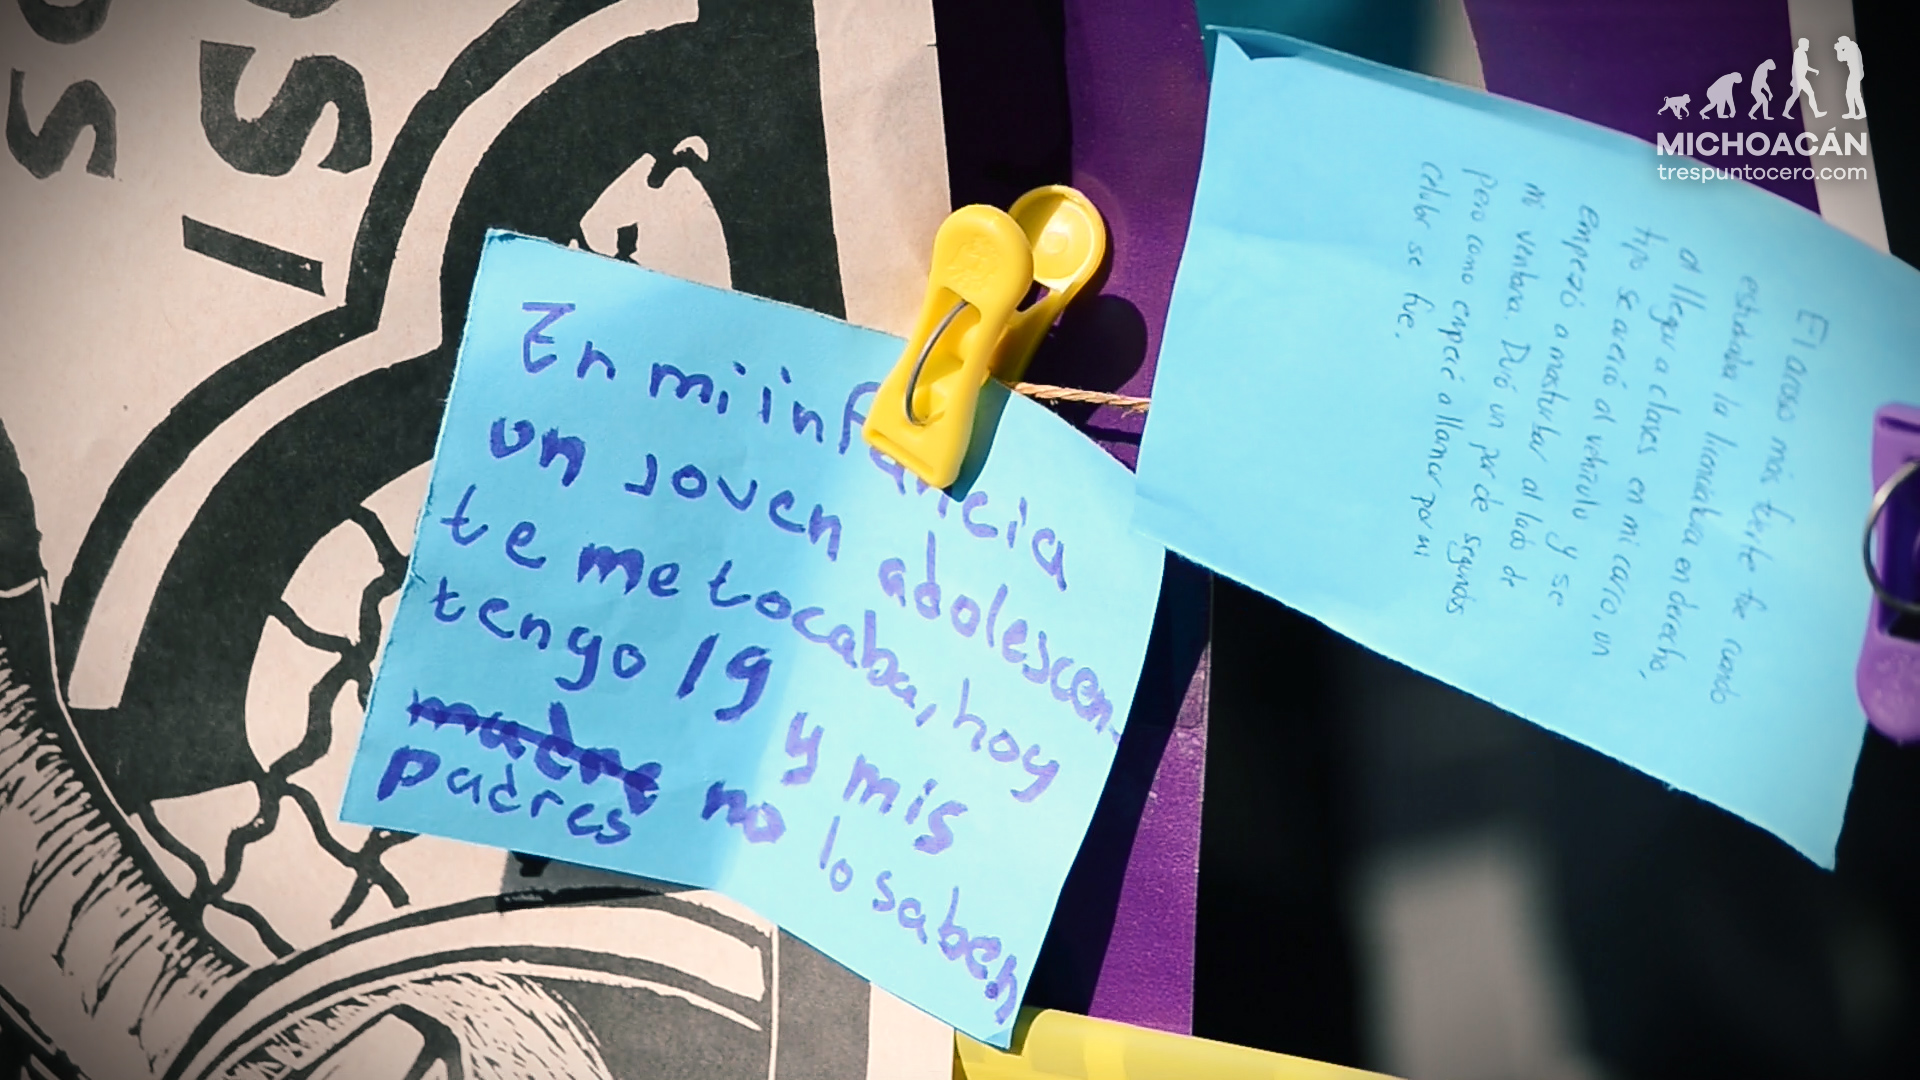 SO
ISO
MICHOACÁN
trespuntocero.com
En mi infancia
un joven adolescen-
te me tocaba, hoy
tengo 19 y mis
madre no lo saben
padres
El acoso más fuerte fue cuando
estudiaba la licenciatura en derecho,
al llegar a clases en mi carro, un
tipo se acercó al vehículo y se
empezó a masturbar al lado de
mi ventana. Duró un par de segundos
pero como empecé a llamar por mi
celular se fue.